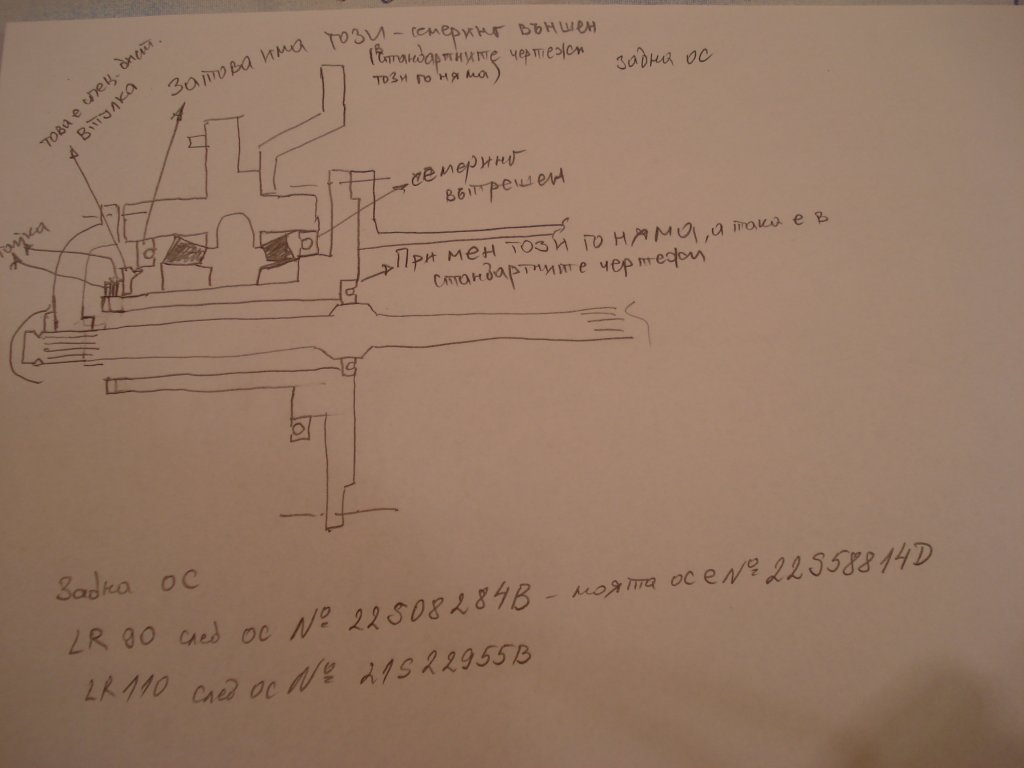 това е спец. дист.
втулка
Затова има този - семеринг външен
(в стандартните чертежи
този го няма)
задна ос
гайка
семеринг
вътрешен
При мен този го няма, а така е в
стандартните чертежи
Задна ос
LR 90 след ос № 22S08284B - моята ос е № 22S58814D
LR110 след ос № 21S22955B